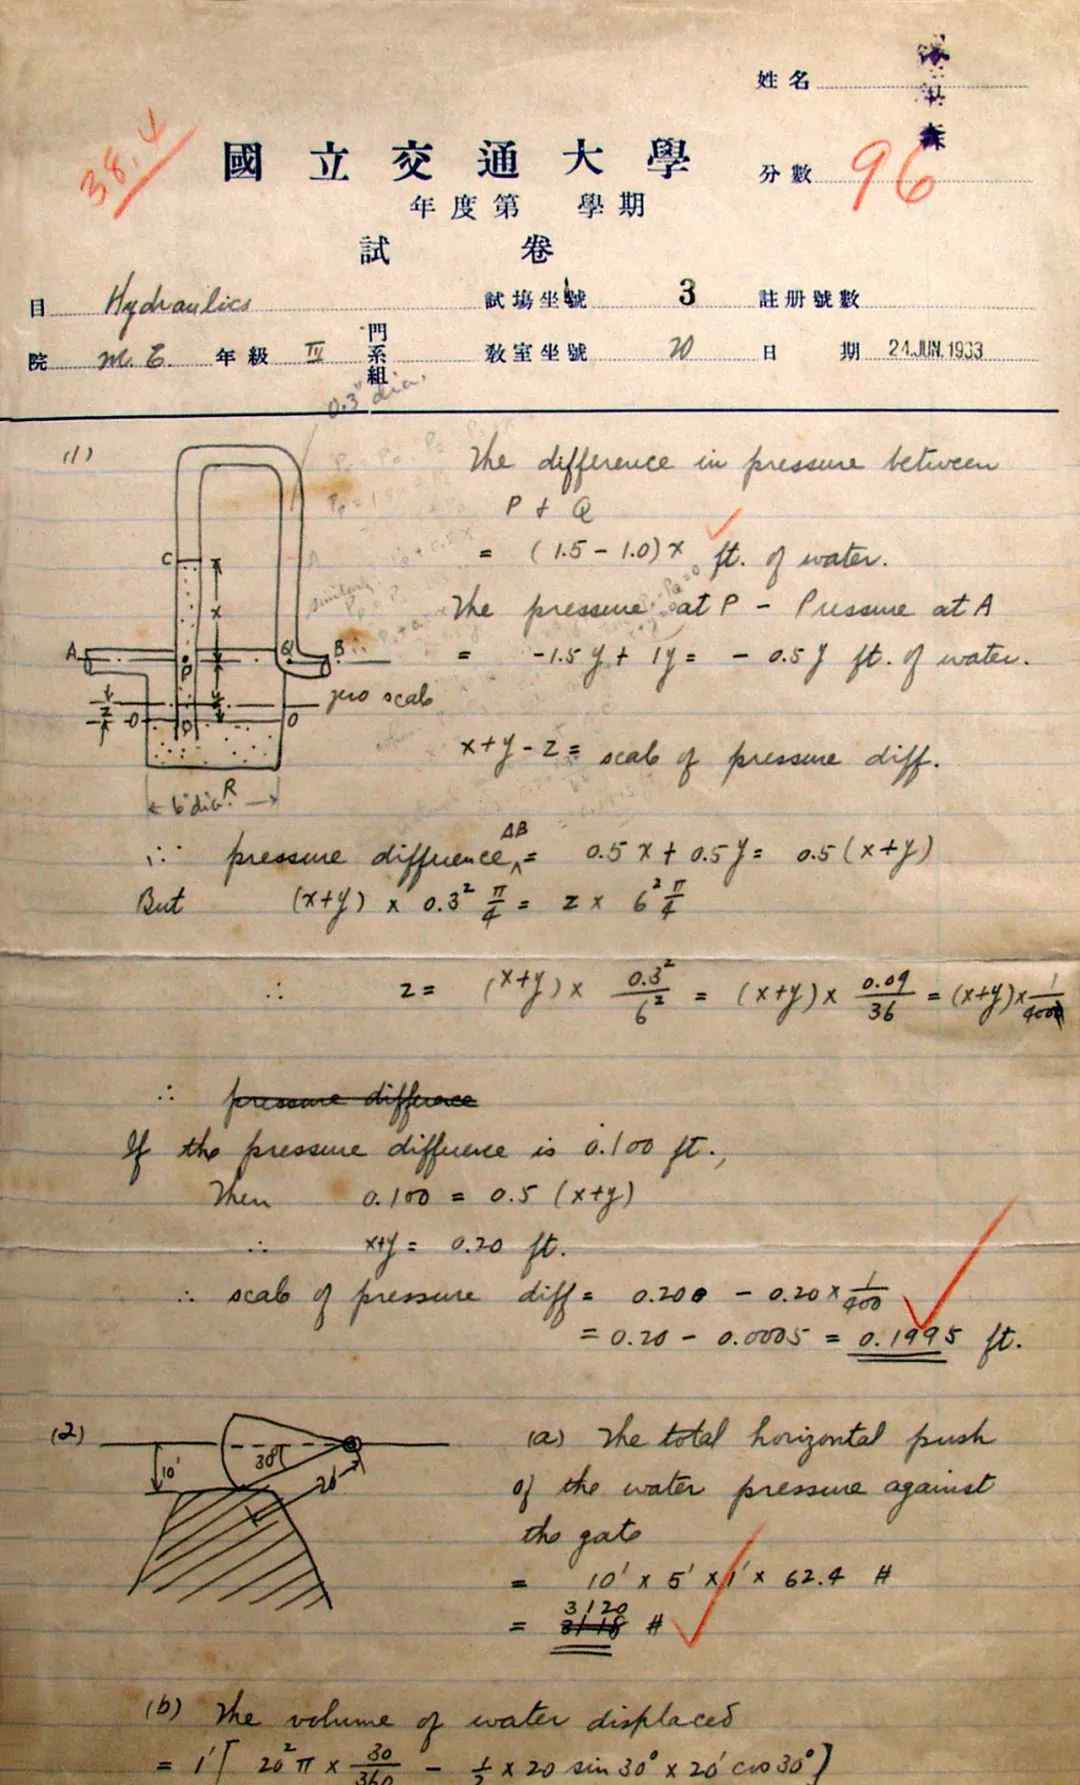 姓名
38.4
國立交通大學
分數 96
年度第 學期
試 卷
目 Hydraulics 試場坐號 3 註册號數
院 M. E. 年級 IV 門系組 教室坐號 20 日期 24.JUN.1933
0.3" dia.
(1)
The difference in pressure between
P + Q
= (1.5 - 1.0)x ft. of water.
The pressure at P - Pressure at A
= -1.5y + 1y = - 0.5y ft. of water.
C
x
A
P
Q
B
zero scale
z
O
O
y
x+y-z = scale of pressure diff.
6" dia.
R
∴ pressure difference AB = 0.5x + 0.5y = 0.5(x+y)
But (x+y) x 0.3² π/4 = z x 6² π/4
∴ z = (x+y) x 0.3²/6² = (x+y) x 0.09/36 = (x+y) x 1/400
∴ pressure difference
If the pressure difference is 0.100 ft.,
Then 0.100 = 0.5 (x+y)
∴ x+y = 0.20 ft.
∴ scale of pressure diff = 0.200 - 0.20 x 1/400
= 0.20 - 0.0005 = 0.1995 ft.
(2)
30°
10'
20'
(a) The total horizontal push
of the water pressure against
the gate
= 10' x 5' x 1' x 62.4 #
= 3118 3120 #
(b) The volume of water displaced
= 1' [ 20² π x 30/360 - 1/2 x 20 sin 30° x 20' cos 30° ]